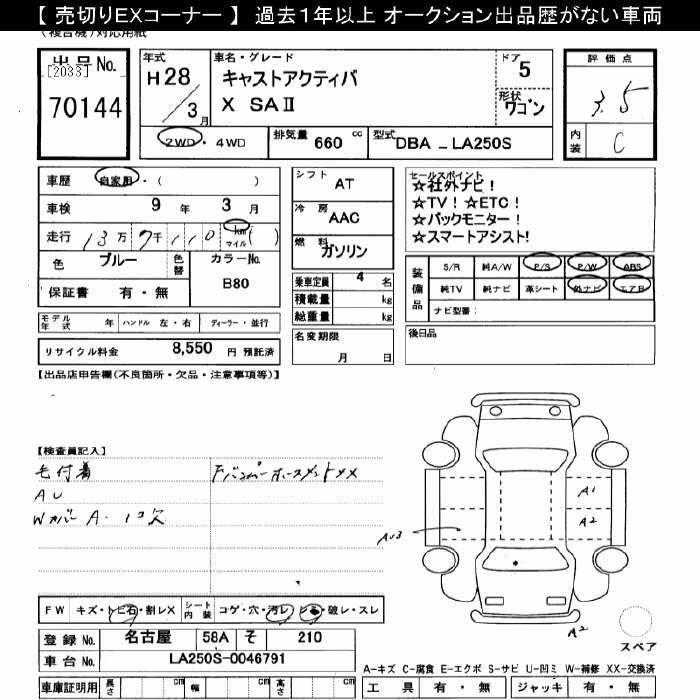 【 売切りEXコーナー 】 過去1年以上 オークション出品歴がない車両
(複合機)対応用紙
出品No.
[2033]
70144
年式
H28
3月
車名・グレード
キャストアクティバ
X SAⅡ
ドア
5
形状
ワゴン
2WD ・ 4WD
排気量 660 cc
型式 DBA - LA250S
評価点
3.5
内装 C
車歴 自家用・( )
車検 9 年 3 月
走行 13万 7千 110 km マイル ( )
色 ブルー 色替 カラーNo. B80
保証書 有・無
シフト AT
冷房 AAC
燃料 ガソリン
乗車定員 4 名
積載量 kg
総重量 kg
セールスポイント
☆社外ナビ!
☆TV! ☆ETC!
☆バックモニター!
☆スマートアシスト!
装備品
S/R 純A/W P/S P/W ABS
純TV 純ナビ 革シート 外ナビ エアB
ナビ型番:
モデル年式 年 ハンドル 左・右 ディーラー・並行
リサイクル料金 8,550 円 預託済
名変期限
月 日
後日品
【出品店申告欄(不良箇所・欠品・注意事項等)】
【検査員記入】
毛付着
AU
Wカバー A・1コ欠
A1
A2
A2
FW キズ・トビ石・割レX シート内装 コゲ・穴・汚レ・シミ・破レ・スレ
登録No. 名古屋 58A そ 210
車台No. LA250S-0046791
スペア
A-キズ C-腐食 E-エクボ S-サビ U-凹ミ W-補修 XX-交換済
車庫証明用 長さ cm 幅 cm 高さ cm
工具 有・無 ジャッキ 有・無